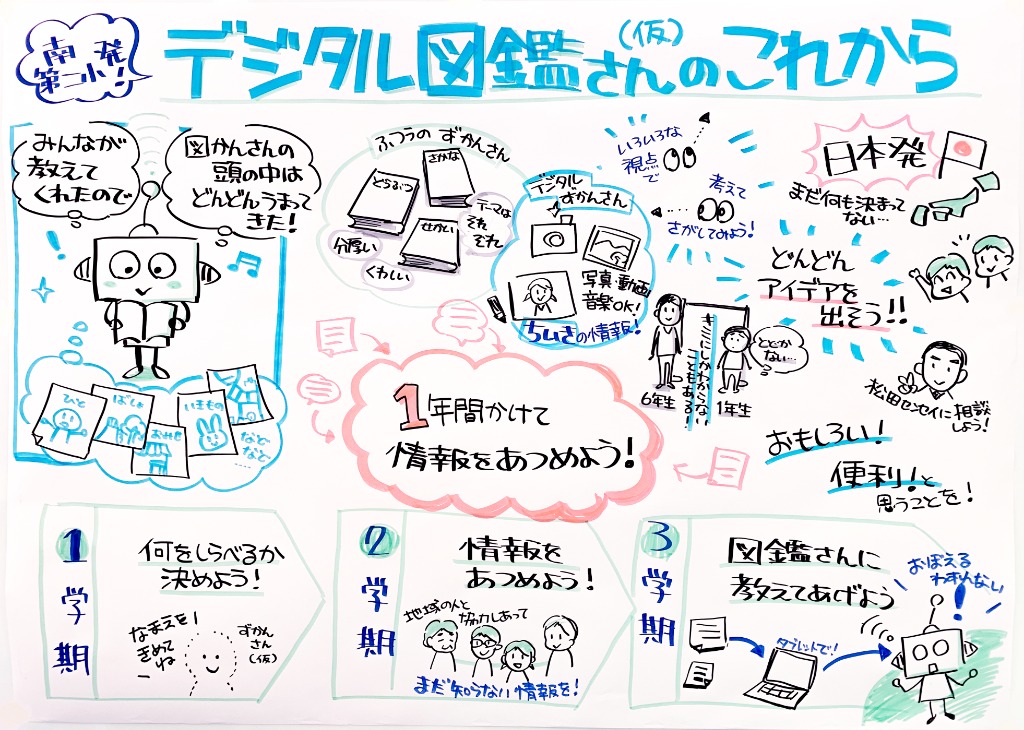 南発
第二小!
デジタル図鑑さん(仮)のこれから
みんなが
教えて
くれたので
図かんさんの
頭の中は
どんどんうまって
きた!
ひと
ばしょ
おみせ
いきもの
など
など…
ふつうの ずかんさん
どうぶつ
さかな
せかい
テーマは
それ
ぞれ
分厚い
くわしい
デジタル
ずかんさん
写真・動画
音楽OK!
ちいきの情報!
いろいろな
視点
で
考えて
さがしてみよう!
日本発
まだ何も決まって
ない…
どんどん
アイデアを
出そう!!
松田センセイに相談
しよう!
おもしろい!
便利!と
思うことを!
そこにしかわからない
こともある!
とどか
ない…
6年生
1年生
1年間かけて
情報をあつめよう!
1学期
何をしらべるか
決めよう!
なまえを!
きめて
ね
ずかん
さん
(仮)
2学期
情報を
あつめよう!
地域の人と
協力しあって
まだ知らない情報を!
3学期
図鑑さんに
教えてあげよう
タブレットで!
おぼえる
わすれない
!